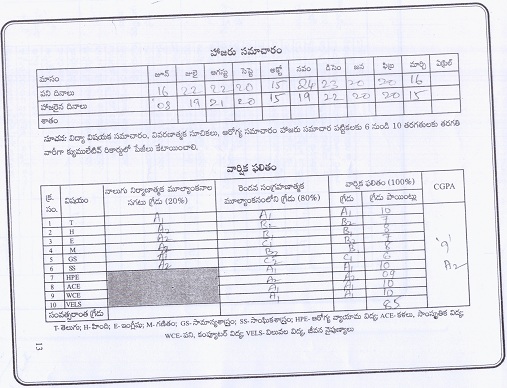 హాజరు సమాచారం
మాసం జూన్ జులై ఆగస్టు సెప్టె అక్టో నవం డిసెం జన ఫిబ్ర మార్చి ఏప్రిల్
పని దినాలు 16 22 22 20 15 24 23 20 20 16
హాజరైన దినాలు 08 19 21 20 15 19 22 20 20 15
శాతం
సూచన: విద్యా విషయక సమాచారం, వివరణాత్మక సూచికలు, ఆరోగ్య సమాచారం హాజరు సమాచార పట్టికలకు 6 నుండి 10 తరగతులకు తరగతి
వారీగా క్యుములేటివ్ రికార్డులో పేజీలు కేటాయించాలి.
వార్షిక ఫలితం
క్ర. సం. విషయం నాలుగు నిర్మాణాత్మక మూల్యాంకనాల సగటు గ్రేడు (20%) రెండవ సంగ్రహణాత్మక మూల్యాంకనంలోని గ్రేడు (80%) వార్షిక ఫలితం (100%) CGPA
గ్రేడు గ్రేడు పాయింట్లు
1 T A1 A1 A1 10
2 H A2 B2 B2 7
3 E A2 B1 B1 8
4 M A2 C1 B2 7
5 GS A1 B2 B1 8
6 SS A2 C2 C1 6
7 HPE A1 A1 10
8 ACE A2 A2 09
9 WCE A1 A1 10
10 VELS A1 A1 10
సంవత్సరాంత గ్రేడు 85
'9'
A2
T- తెలుగు; H-హిందీ; E- ఇంగ్లీషు; M- గణితం; GS- సామాన్యశాస్త్రం; SS- సాంఘికశాస్త్రం; HPE- ఆరోగ్య వ్యాయామ విద్య; ACE- కళలు, సాంస్కృతిక విద్య;
WCE- పని, కంప్యూటర్ విద్య; VELS- విలువల విద్య, జీవన నైపుణ్యాలు
13